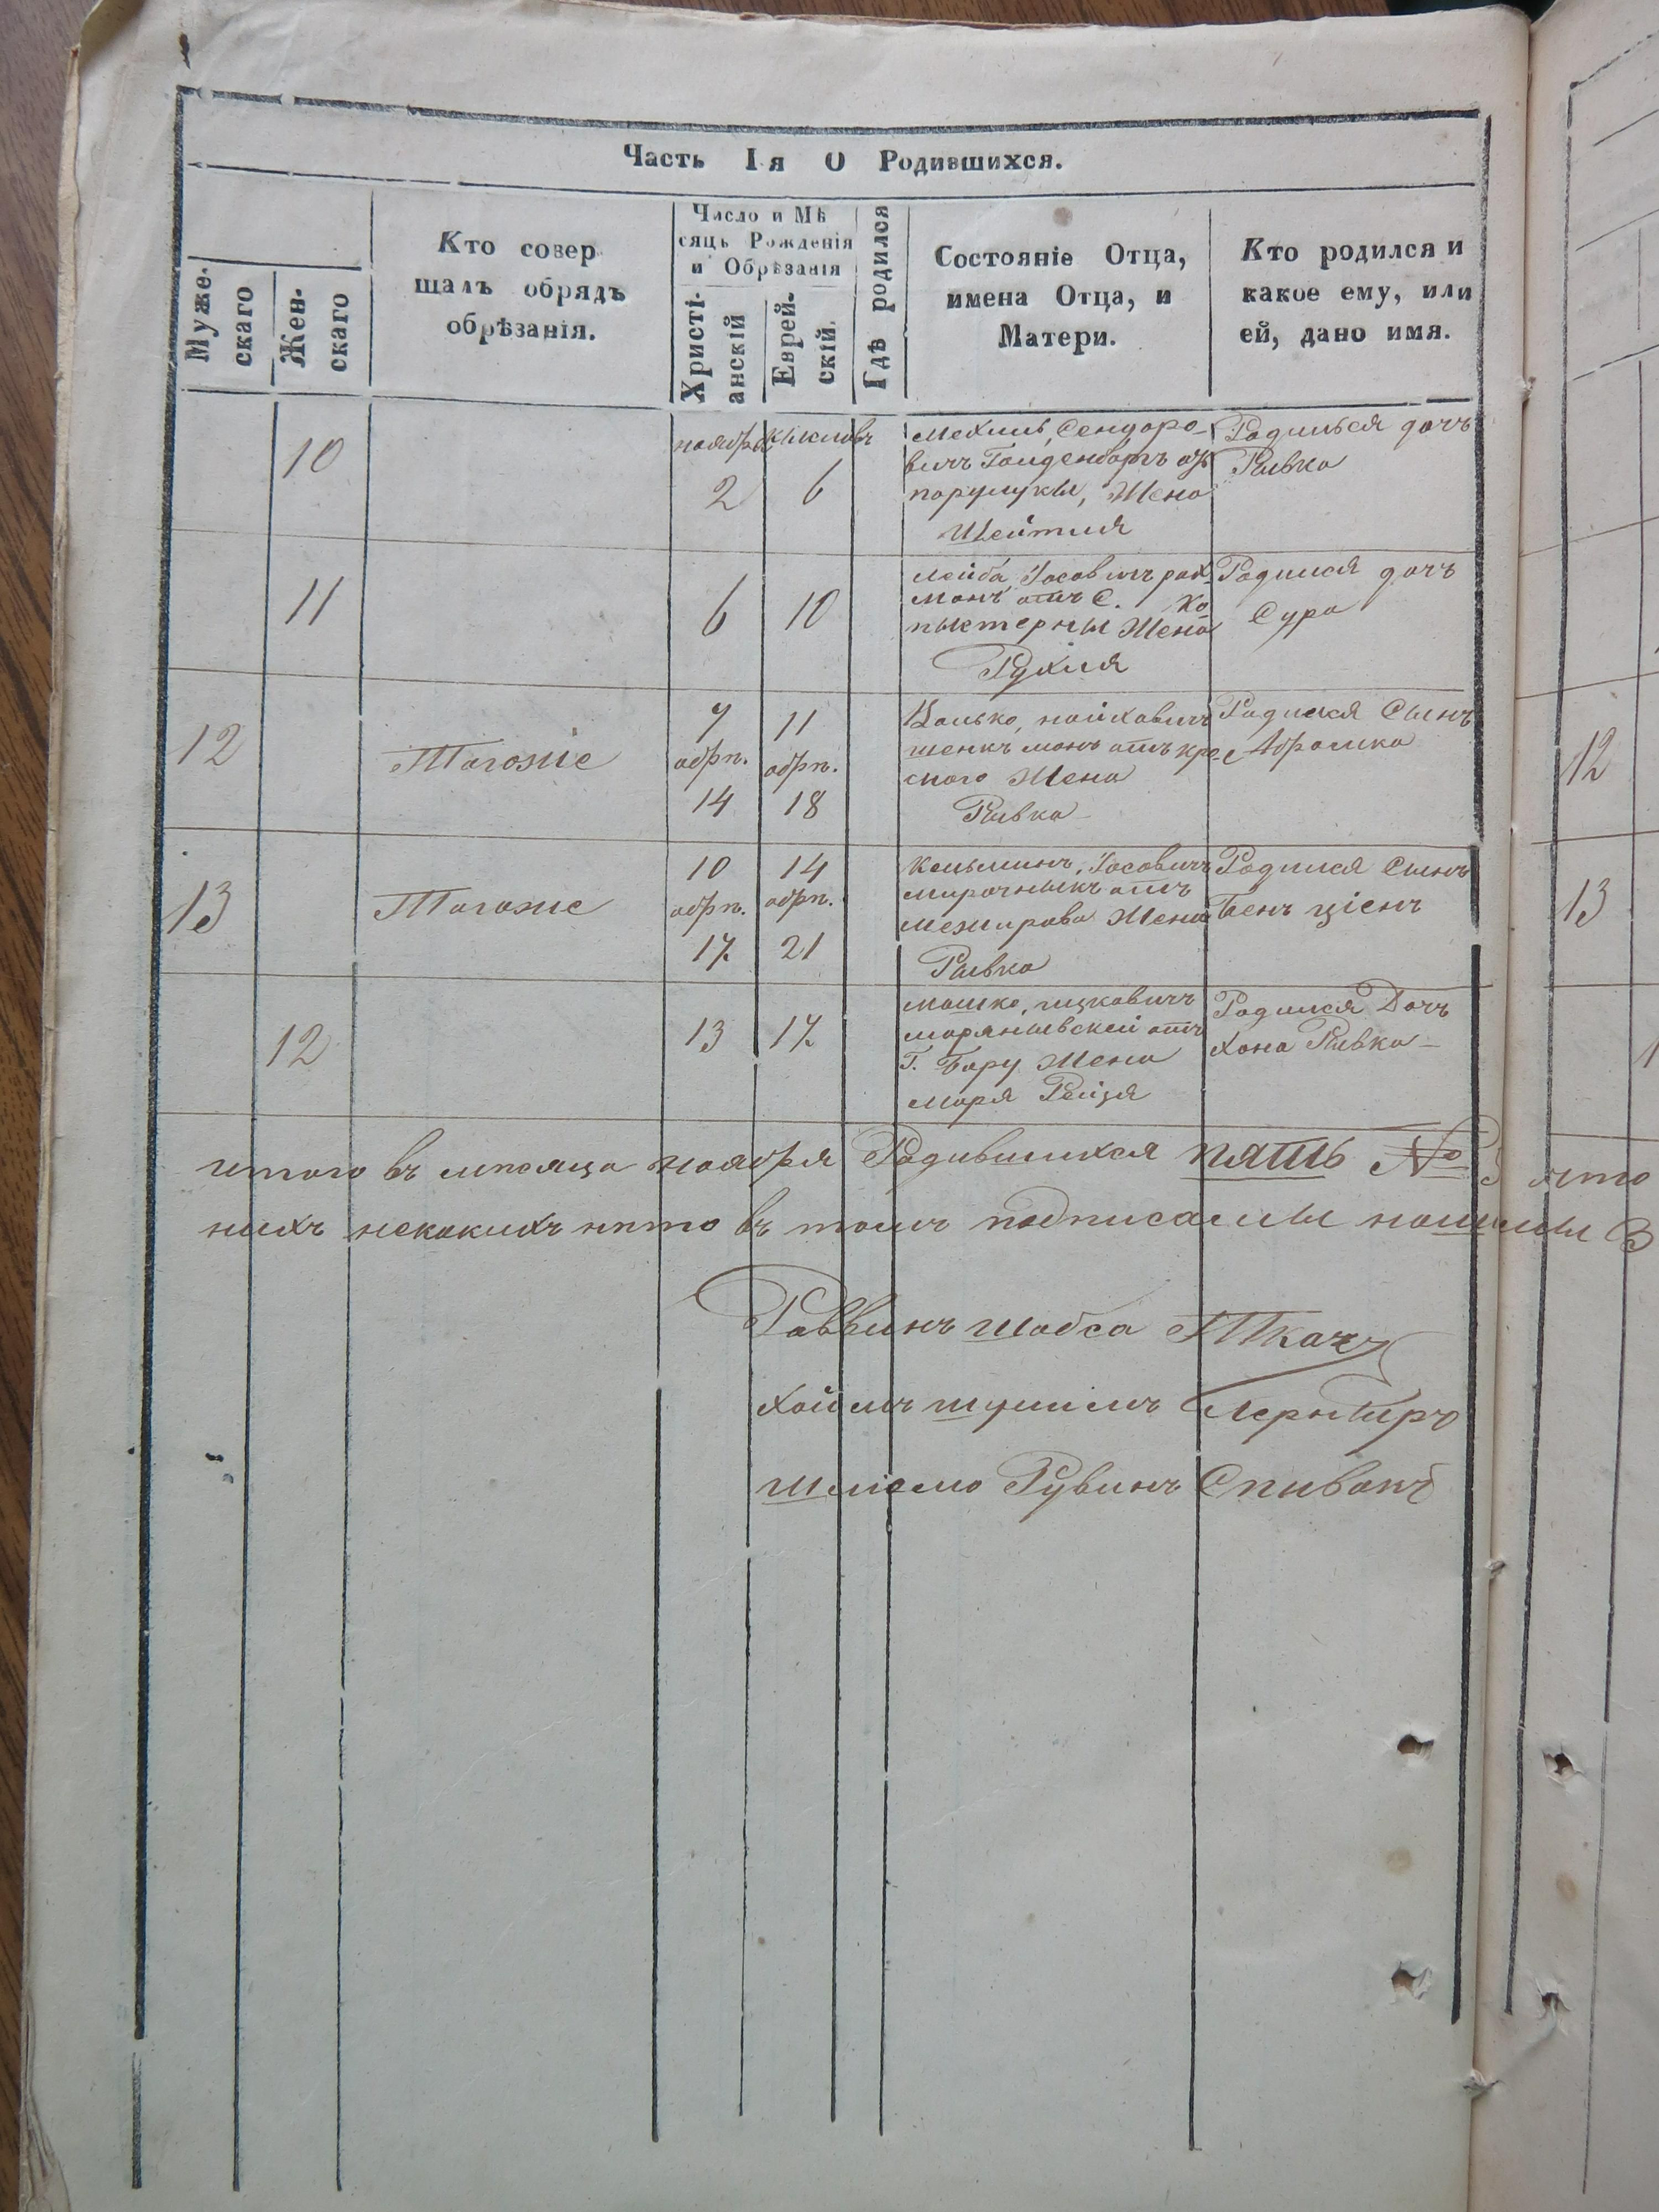 Часть I я О Родившихся.
Муже-
скаго
Жен-
скаго
Кто совер
шалъ обрядъ
обрѣзанія.
Число и Мѣ
сяцъ Рожденія
и Обрѣзанія
Христі-
анскій
Еврей-
скій.
Гдѣ родился
Состояніе Отца,
имена Отца, и
Матери.
Кто родился и
какое ему, или
ей, дано имя.
10
ноября
2
6
Мехиль, Сендоро-
вичъ
Жена
Шейтля
Родилься дочъ
Ривка
11
6
10
Лейба Іосовичъ рох
манъ отъ с. Ко
пыстерны Жена
Рухля
Родился дочъ
Сура
12
Тогоже
7
обрп.
14
11
обрп.
18
шенкъ манъ отъ крас
ского Жена
Ривка
Родился Сынъ
Абрамко
13
Тогоже
10
обрп.
17.
14
обрп.
21
Кельманъ, Іосовичъ
мирочныкъ отъ
межирова Жена
Ривка
Родился Сынъ
Бенъ ціенъ
12
13
17.
Мошко, ицковичъ
моряныевскей отъ
Г. Бару Жена
Маря Рейзя
Родился Дочъ
Хона Ривка
итого въ мпсяца ноября Родившихся пять № 5 что
нихъ некакихъ нпто въ томъ подписалмы
Раввинъ Шобса Ткачъ
Хаймъ шулимъ Лернеръ
Шліомо Рувинъ Спивакъ
12
13